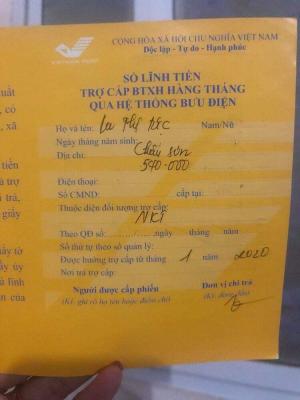 CỘNG HÒA XÃ HỘI CHỦ NGHĨA VIỆT NAM
Độc lập - Tự do - Hạnh phúc
SỔ LĨNH TIỀN
TRỢ CẤP BTXH HÀNG THÁNG
QUA HỆ THỐNG BƯU ĐIỆN
Họ và tên: La Thị Nam/Nữ
Ngày tháng năm sinh:
Địa chỉ: Châu Sơn
540.000
Điện thoại:
Số CMND: cấp tại:
Thuộc diện đối tượng trợ cấp:
NKT
Theo QĐ số: ngày tháng năm
Số thứ tự theo sổ quản lý:
Được hưởng trợ cấp từ tháng 1 năm 2020
Nơi trả trợ cấp:
Người được cấp phiếu Đơn vị chi trả
(Ký, ghi rõ họ tên hoặc điểm chỉ) (Ký, đóng dấu)
uất
, có
, xã
tiền
à trợ
i trả,
giấy
ày tờ
ủy
à lĩnh
n của